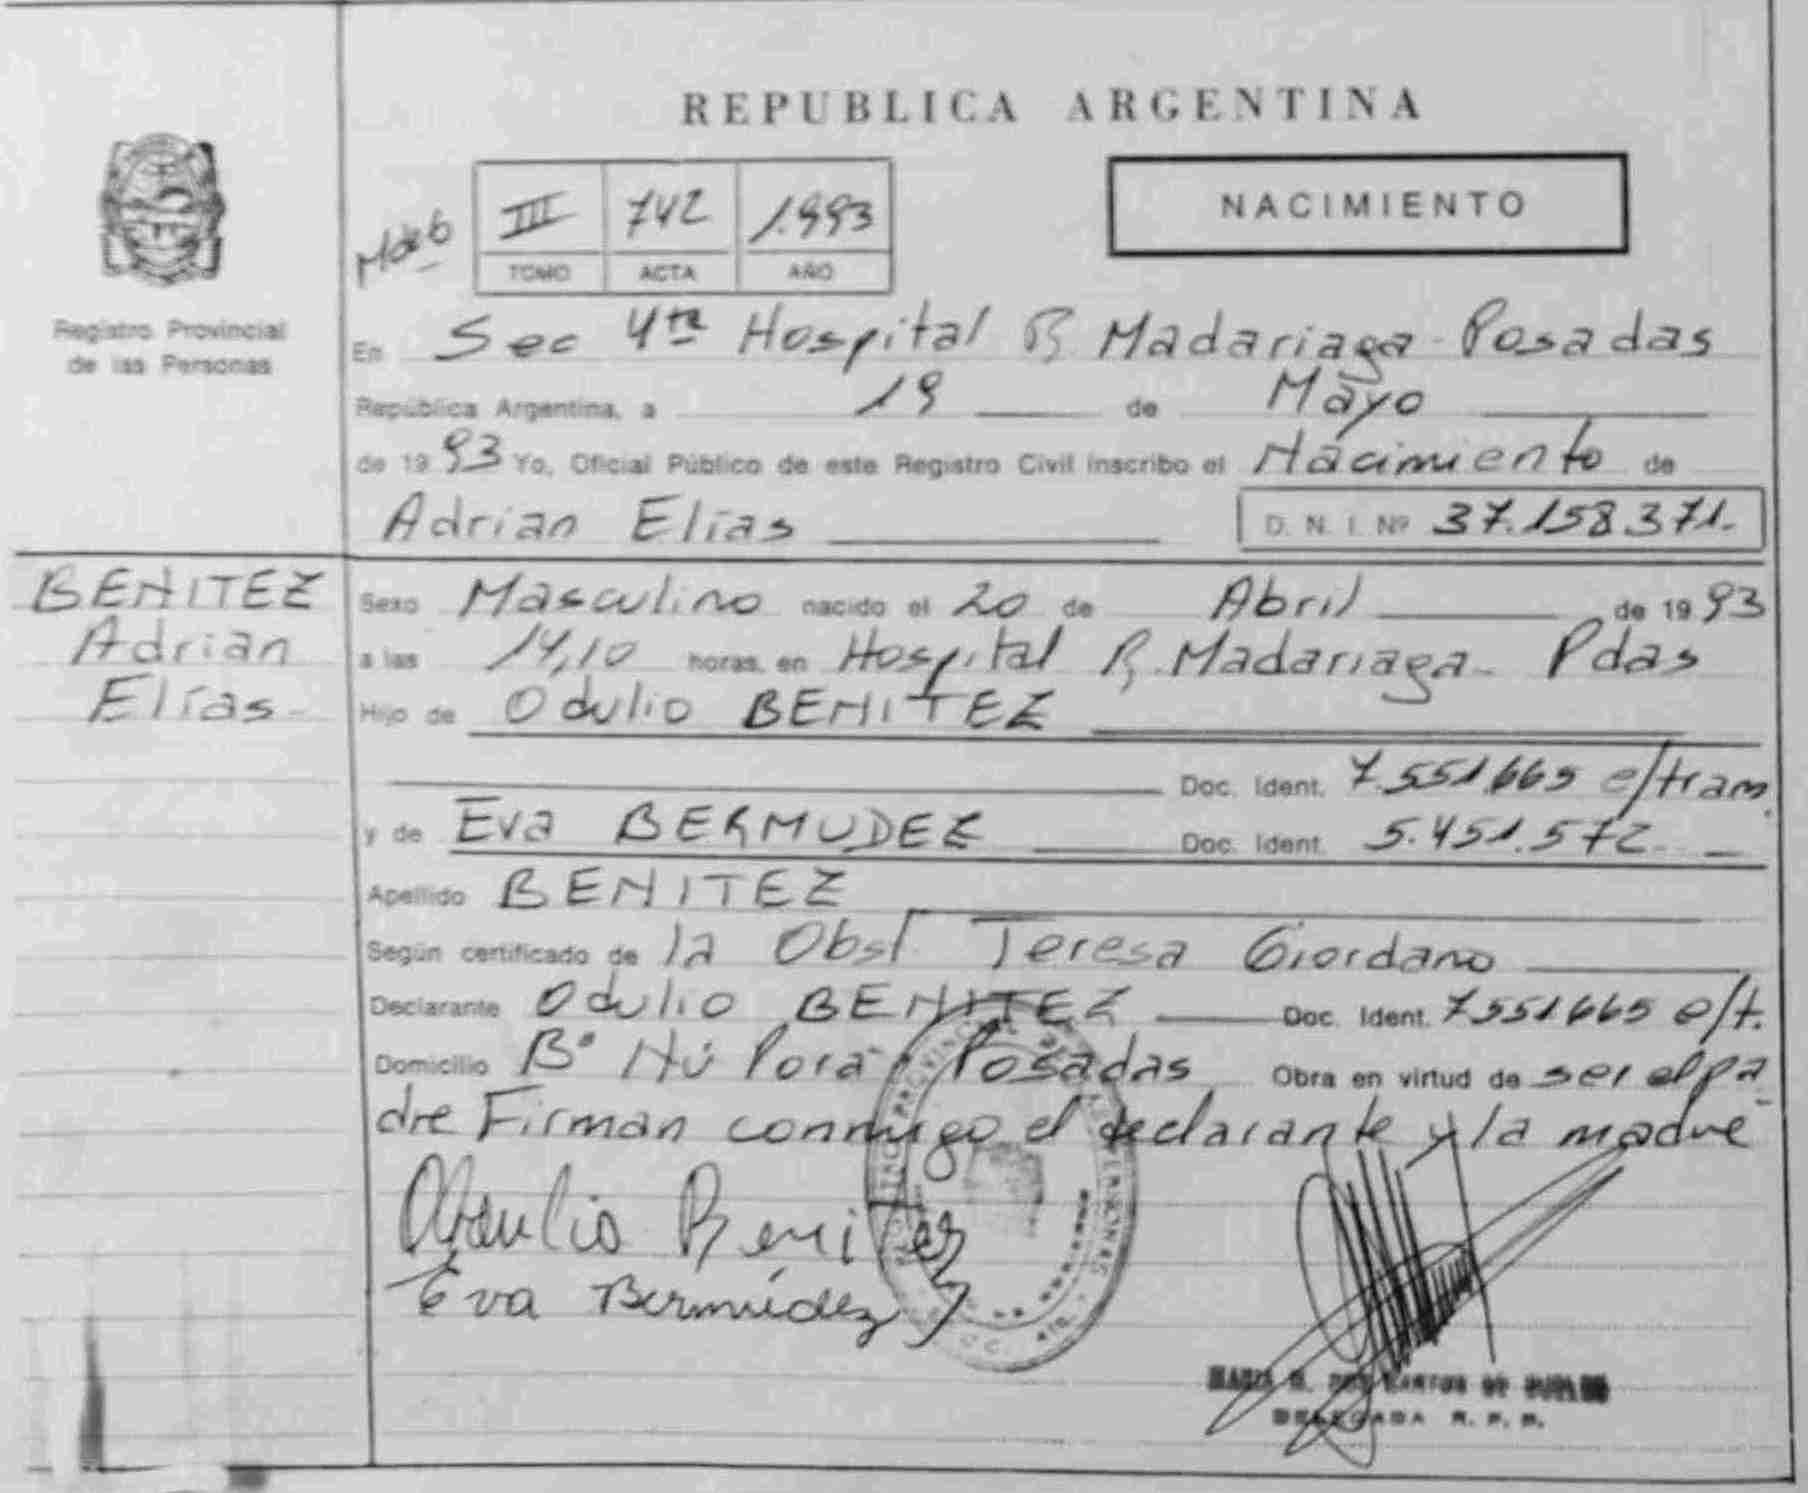 REPUBLICA ARGENTINA
NACIMIENTO
III 742 1.993
TOMO ACTA AÑO
Registro Provincial
de las Personas
En Sec 4ta Hospital R Madariaga - Posadas
República Argentina, a 19 de Mayo
de 1993 Yo, Oficial Público de este Registro Civil inscribo el Nacimiento de
Adrian Elías D. N. I. Nº 37.158.371.
BENITEZ
Adrian
Elías -
Sexo Masculino nacido el 20 de Abril de 1993
a las 14,10 horas, en Hospital R. Madariaga - Pdas
Hijo de Odulio BENITEZ
Doc. Ident. 7.551.665 e/tram.
y de Eva BERMUDEZ Doc. Ident. 5.451.572
Apellido BENITEZ
Según certificado de la Obst Teresa Giordano
Declarante Odulio BENITEZ Doc. Ident. 7551665 e/t.
Domicilio Bº Ñú Porá - Posadas Obra en virtud de ser el pa
dre Firman conmigo el declarante y la madre
Odulio Benitez
Eva Bermúdez
DELEGADA R. P. P.